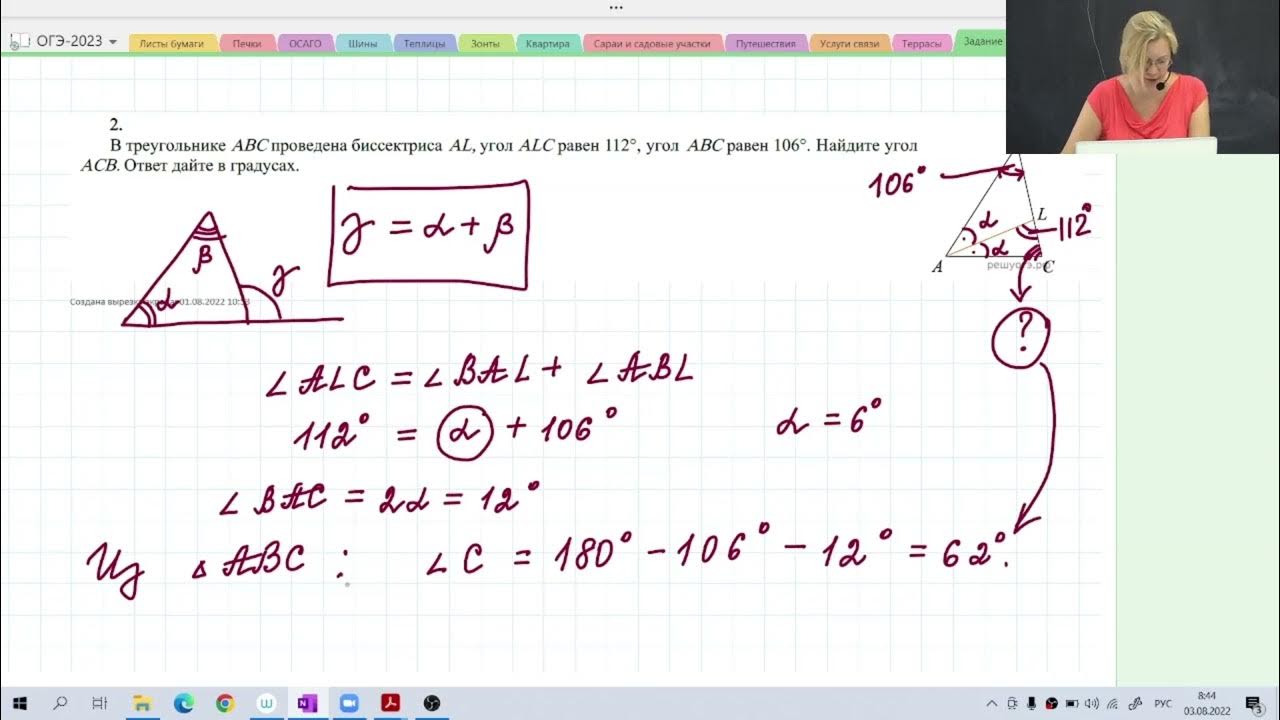 ОГЭ-2023
Листы бумаги Печки ОСАГО Шины Теплицы Зонты Квартира Сараи и садовые участки Путешествия Услуги связи Террасы Задание
2.
В треугольнике ABC проведена биссектриса AL, угол ALC равен 112°, угол ABC равен 106°. Найдите угол
ACB. Ответ дайте в градусах.
106°
γ = α + β
β
γ
α
Создана вырезка 01.08.2022
α
L
112°
α
A
C
?
∠ALC = ∠BAL + ∠ABL
112° = α + 106°
α = 6°
∠BAC = 2α = 12°
Из △ABC : ∠C = 180° − 106° − 12° = 62°.
РУС
8:44
03.08.2022
3